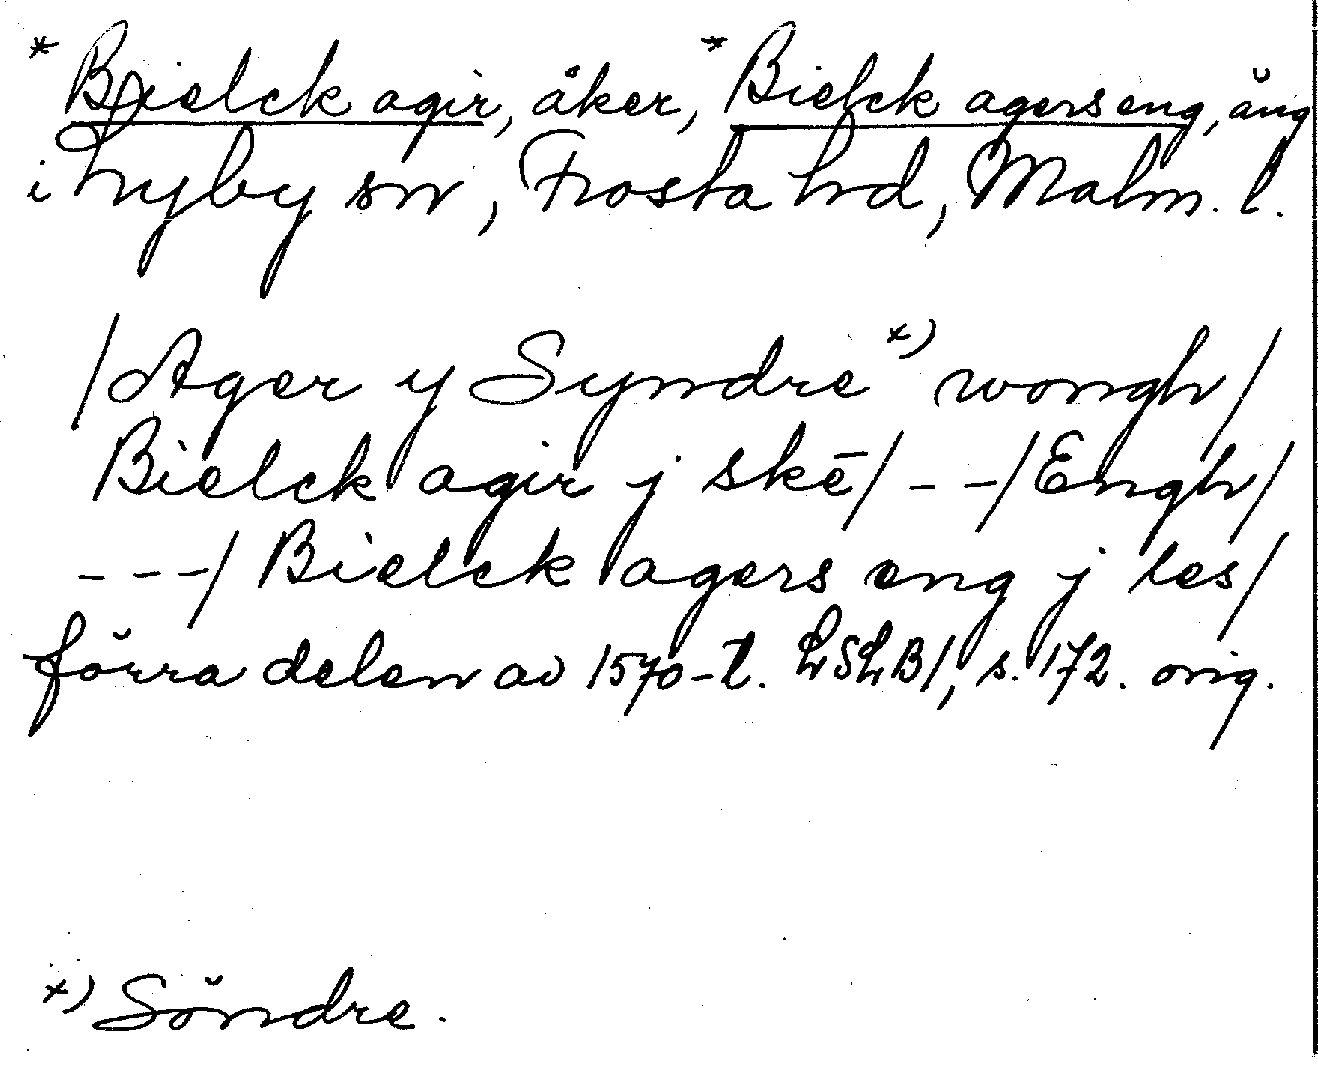 *Bielck agir, åker, *Bielck agers eng, äng
i Lyby sn, Frosta hd, Malm. l.
/Ager y Syndre *) wongh/
Bielck agir j skē/ - -/Engh/
- - -/ Bielck agers eng j les/
förra delen av 1570-t. LSLB1, s. 172. orig.
*) Söndre.